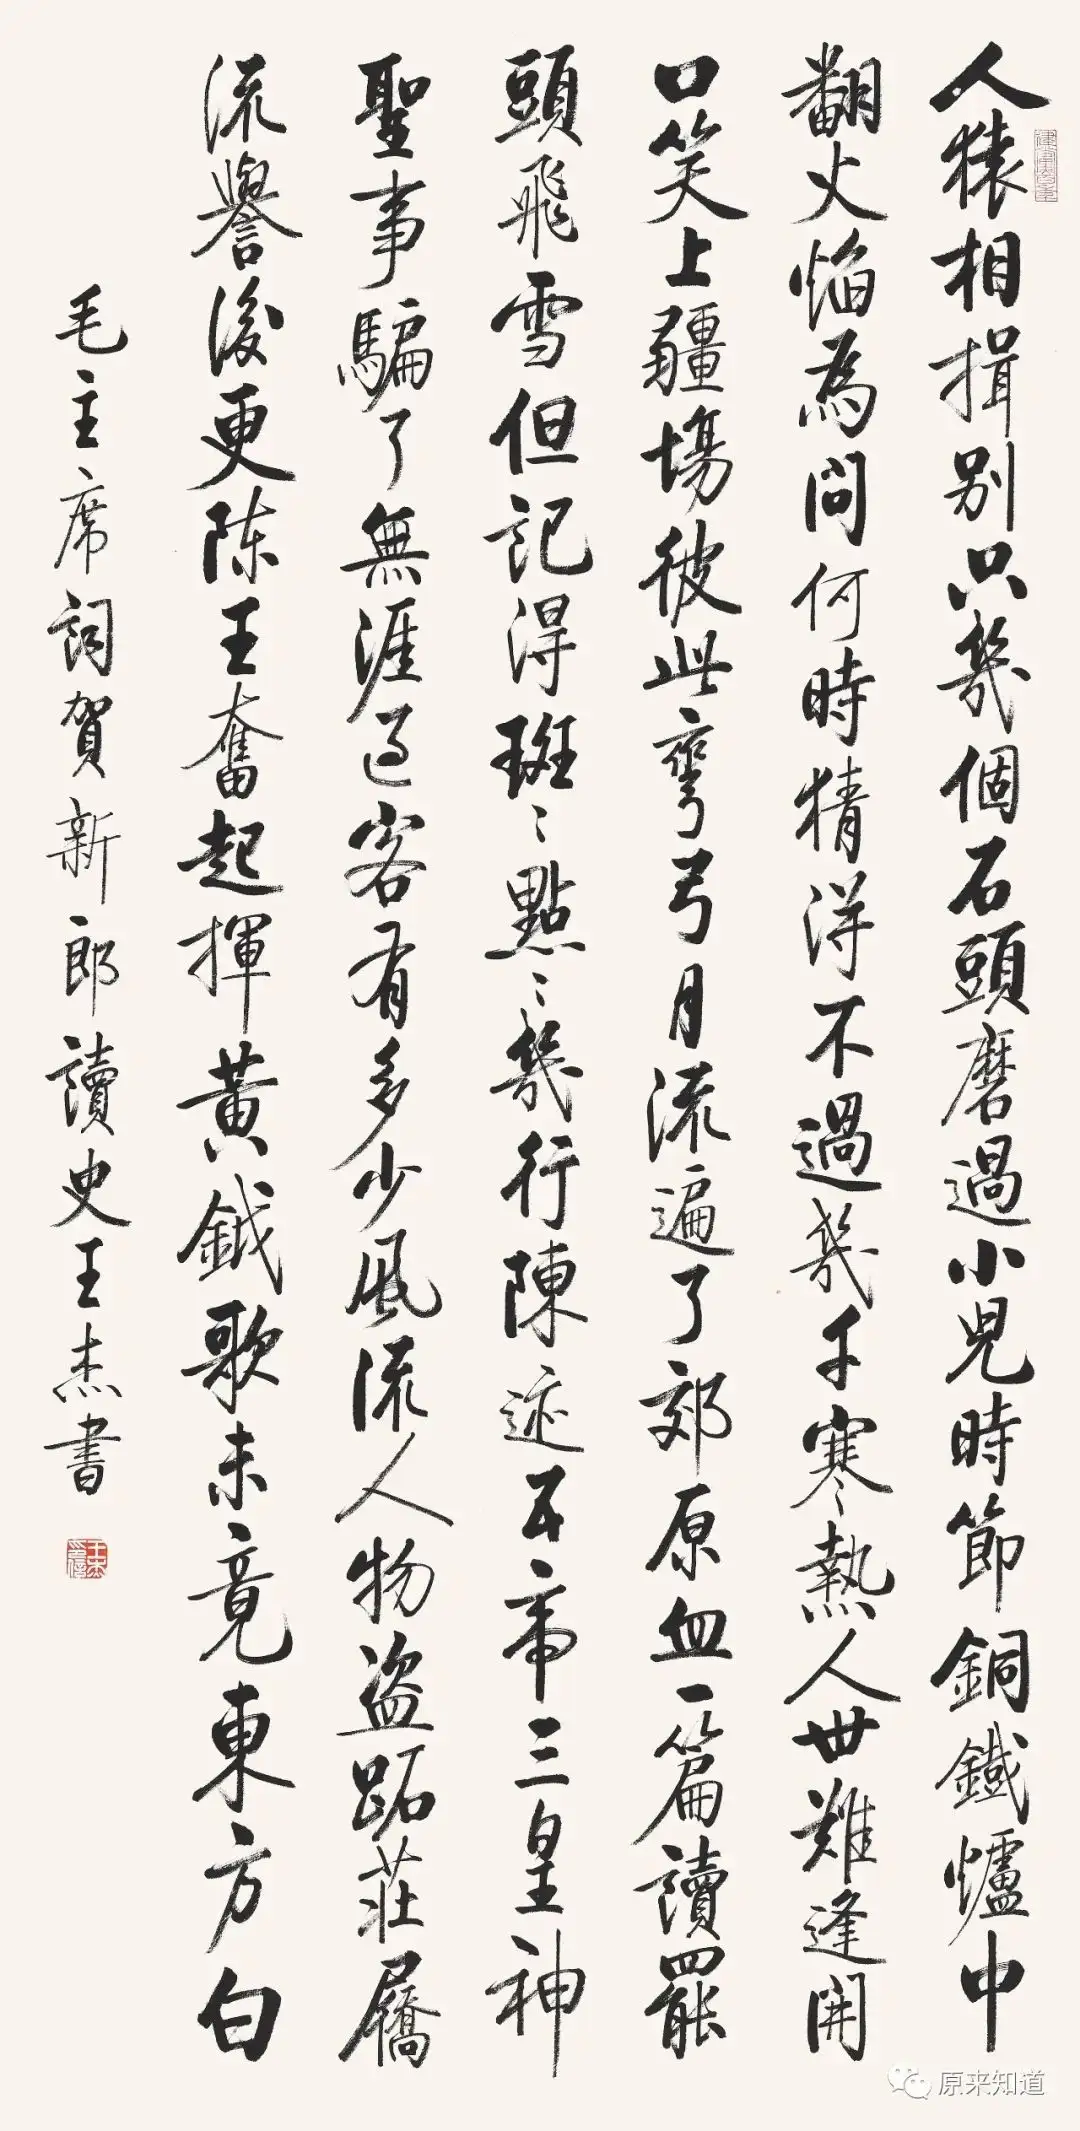 人猿相揖别只幾個石頭磨過小兒時節銅鐵爐中
翻火焰為問何時猜得不過幾千寒熱人世難逢開
口笑上疆場彼此彎弓月流遍了郊原血一篇讀罷
頭飛雪但記得斑〻點〻幾行陳迹五帝三皇神
聖事騙了無涯過客有多少風流人物盜跖莊屩
流譽後更陈王奮起揮黄鉞歌未竟東方白
毛主席詞賀新郎讀史王杰書
原来知道